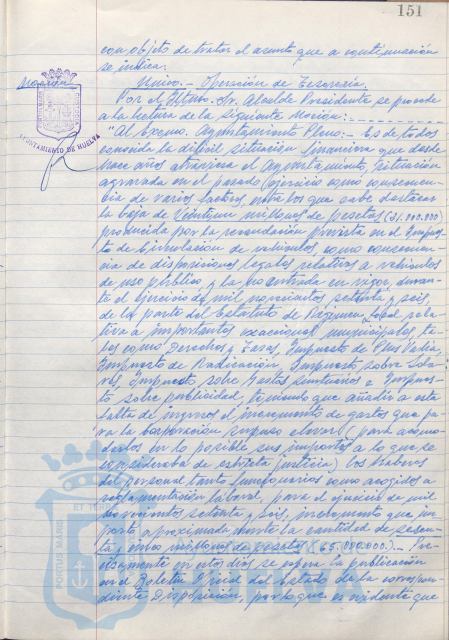 151
con objeto de tratar el asunto que a continuación
se indica:
Moción
Unico.- Operación de Tesorería.
Por el Iltmo. Sr. Alcalde Presidente se procede
a la lectura de la siguiente Moción:
AYUNTAMIENTO DE HUELVA
"Al Excmo. Ayuntamiento Pleno:- Es de todos
conocida la difícil situación financiera que desde
hace años atraviesa el Ayuntamiento, situación
agravada en el pasado ejercicio como consecuen-
cia de varios factores, entre los que cabe destacar
la baja de Veintiun millones de pesetas (21.000.000)
producida por la recaudación prevista en el Impues-
to de Circulación de vehículos, como consecuen-
cia de disposiciones legales relativas a vehículos
de uso público, y la no entrada en vigor, duran-
te el ejercicio de mil novecientos setenta y seis,
de la parte del Estatuto de Régimen Local rela-
tiva a importantes exacciones municipales, ta-
les como Derechos y Tasas, Impuesto de Plus Valía,
Impuesto de Radicación, Impuesto sobre Sola-
res, Impuesto sobre Gastos suntuarios e Impues-
to sobre publicidad, teniendo que añadir a esta
falta de ingresos el incremento de gastos que pa-
ra la Corporación supuso elevar (para acomo-
darlos en lo posible sus importes a lo que se
consideraba de estricta justicia) los haberes
del personal tanto funcionarios como acogidos a
reglamentación laboral, para el ejercicio de mil
novecientos setenta y seis, incremento que im-
portó aproximadamente la cantidad de sesen-
ta y cinco millones de pesetas (65.000.000).- Pre-
cisamente en estos días se espera la publicación
en el Boletín Oficial del Estado de la correspon-
diente Disposición, por lo que es evidente que